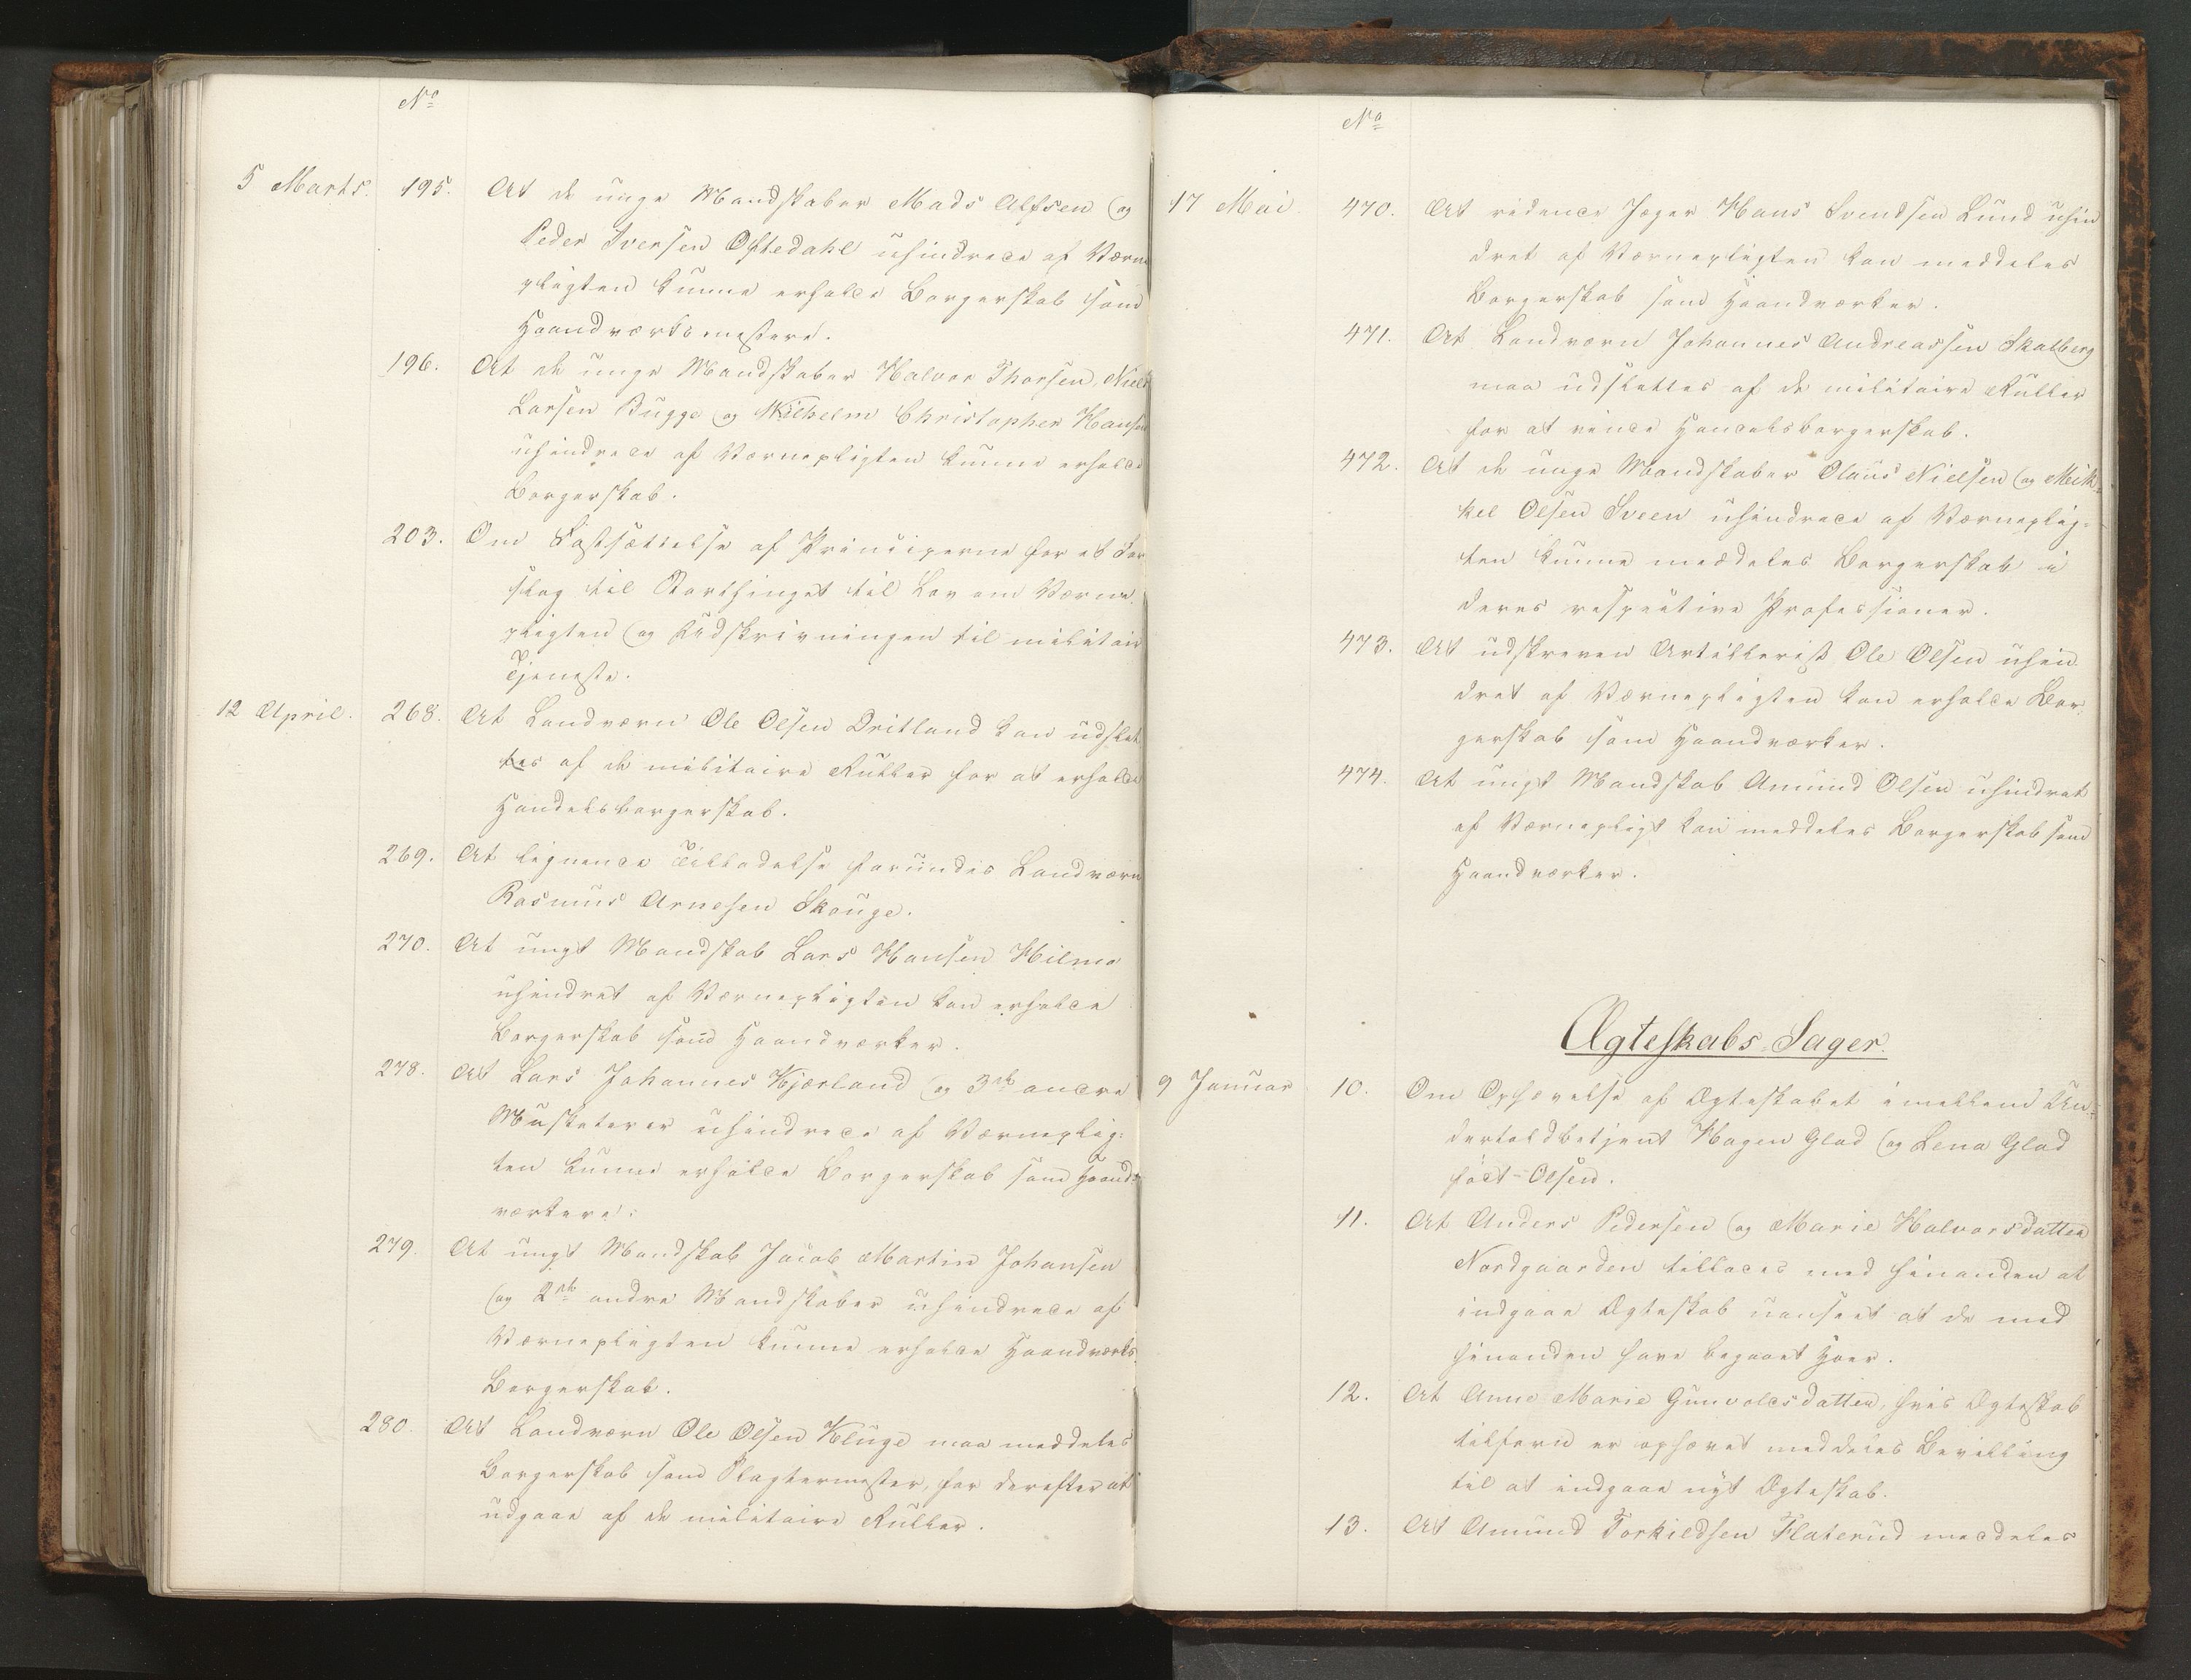 No
5 Marts. 195. At de unge Mandskaber Mads Alfsen og
Peder Iversen Oftedahl uhindrede af Værne
pligten kunne erholde Borgerskab som
Haandværksmestere.
196. At de unge Mandskaber Halvor Thorsen, Niels
Larsen Bugge og Wilhelm Christopher Hansen
uhindrede af Værnepligten kunne erholde
Borgerskab.
203. Om Fastsættelse af Principerne for et For
slag til Storthinget til Lov om Værne
pligten og Udskrivningen til militair
Tjeneste.
12 April. 268. At Landværn Ole Olsen Dritland kan udslet
tes af de militaire Ruller for at erholde
Handelsborgerskab.
269. At lignende Tilladelse forundes Landværn
Rasmus Arnesen Skouge.
270. At ungt Mandskab Lars Hansen Hilmo
uhindret af Værnepligten kan erholde
Borgerskab som Haandværker.
278. At Lars Johannes Kjærland og 3de andre
Musketerer uhindrede af Værneplig:
ten kunne erholde Borgerskab som Haand:
værkere.
279. At ungt Mandskab Jacob Martin Johansen
og 2de andre Mandskaber uhindrede af
Værnepligten kunne erholde Haandværks
Borgerskab.
280. At Landværn Ole Olsen Kluge maa meddeles
Borgerskab som Slagtermester, for derefter at
udgaae af de militaire Ruller.
No
17 Mai. 470. At ridende Jæger Hans Svendsen Lund uhin
dret af Værnepligten kan meddeles
Borgerskab som Haandværker.
471. At Landværn Johannes Andreassen Skalberg
maa udslettes af de militaire Ruller
for at vinde Handelsborgerskab.
472. At de unge Mandskaber Olaus Nielsen og Mik=
kel Olsen Sveen uhindrede af Værneplig=
ten kunne meddeles Borgerskab i
deres respective Professioner.
473. At udskreven Artillerist Ole Olsen uhin
dret af Værnepligten kan erholde Bor
gerskab som Haandværker.
474. At ungt Mandskab Amund Olsen uhindret
af Værnepligt kan meddeles Borgerskab som
Haandværker.
Ægteskabs-Sager.
9 Januar 10. Om Ophævelse af Ægteskabet imellem Un=
dertoldbetjent Hagen Glad og Lena Glad
født Olsen.
11. At Anders Pedersen og Marie Halvorsdatter
Nordgaarden tillades med hinanden at
indgaae Ægteskab uanseet at de med
hinanden have begaaet Hoer.
12. At Anne Marie Gunvoldsdatter, hvis Ægteskab
tilforn er ophævet meddeles Bevilling
til at indgaae nyt Ægteskab.
13. At Amund Torkildsen Flaterud meddeles